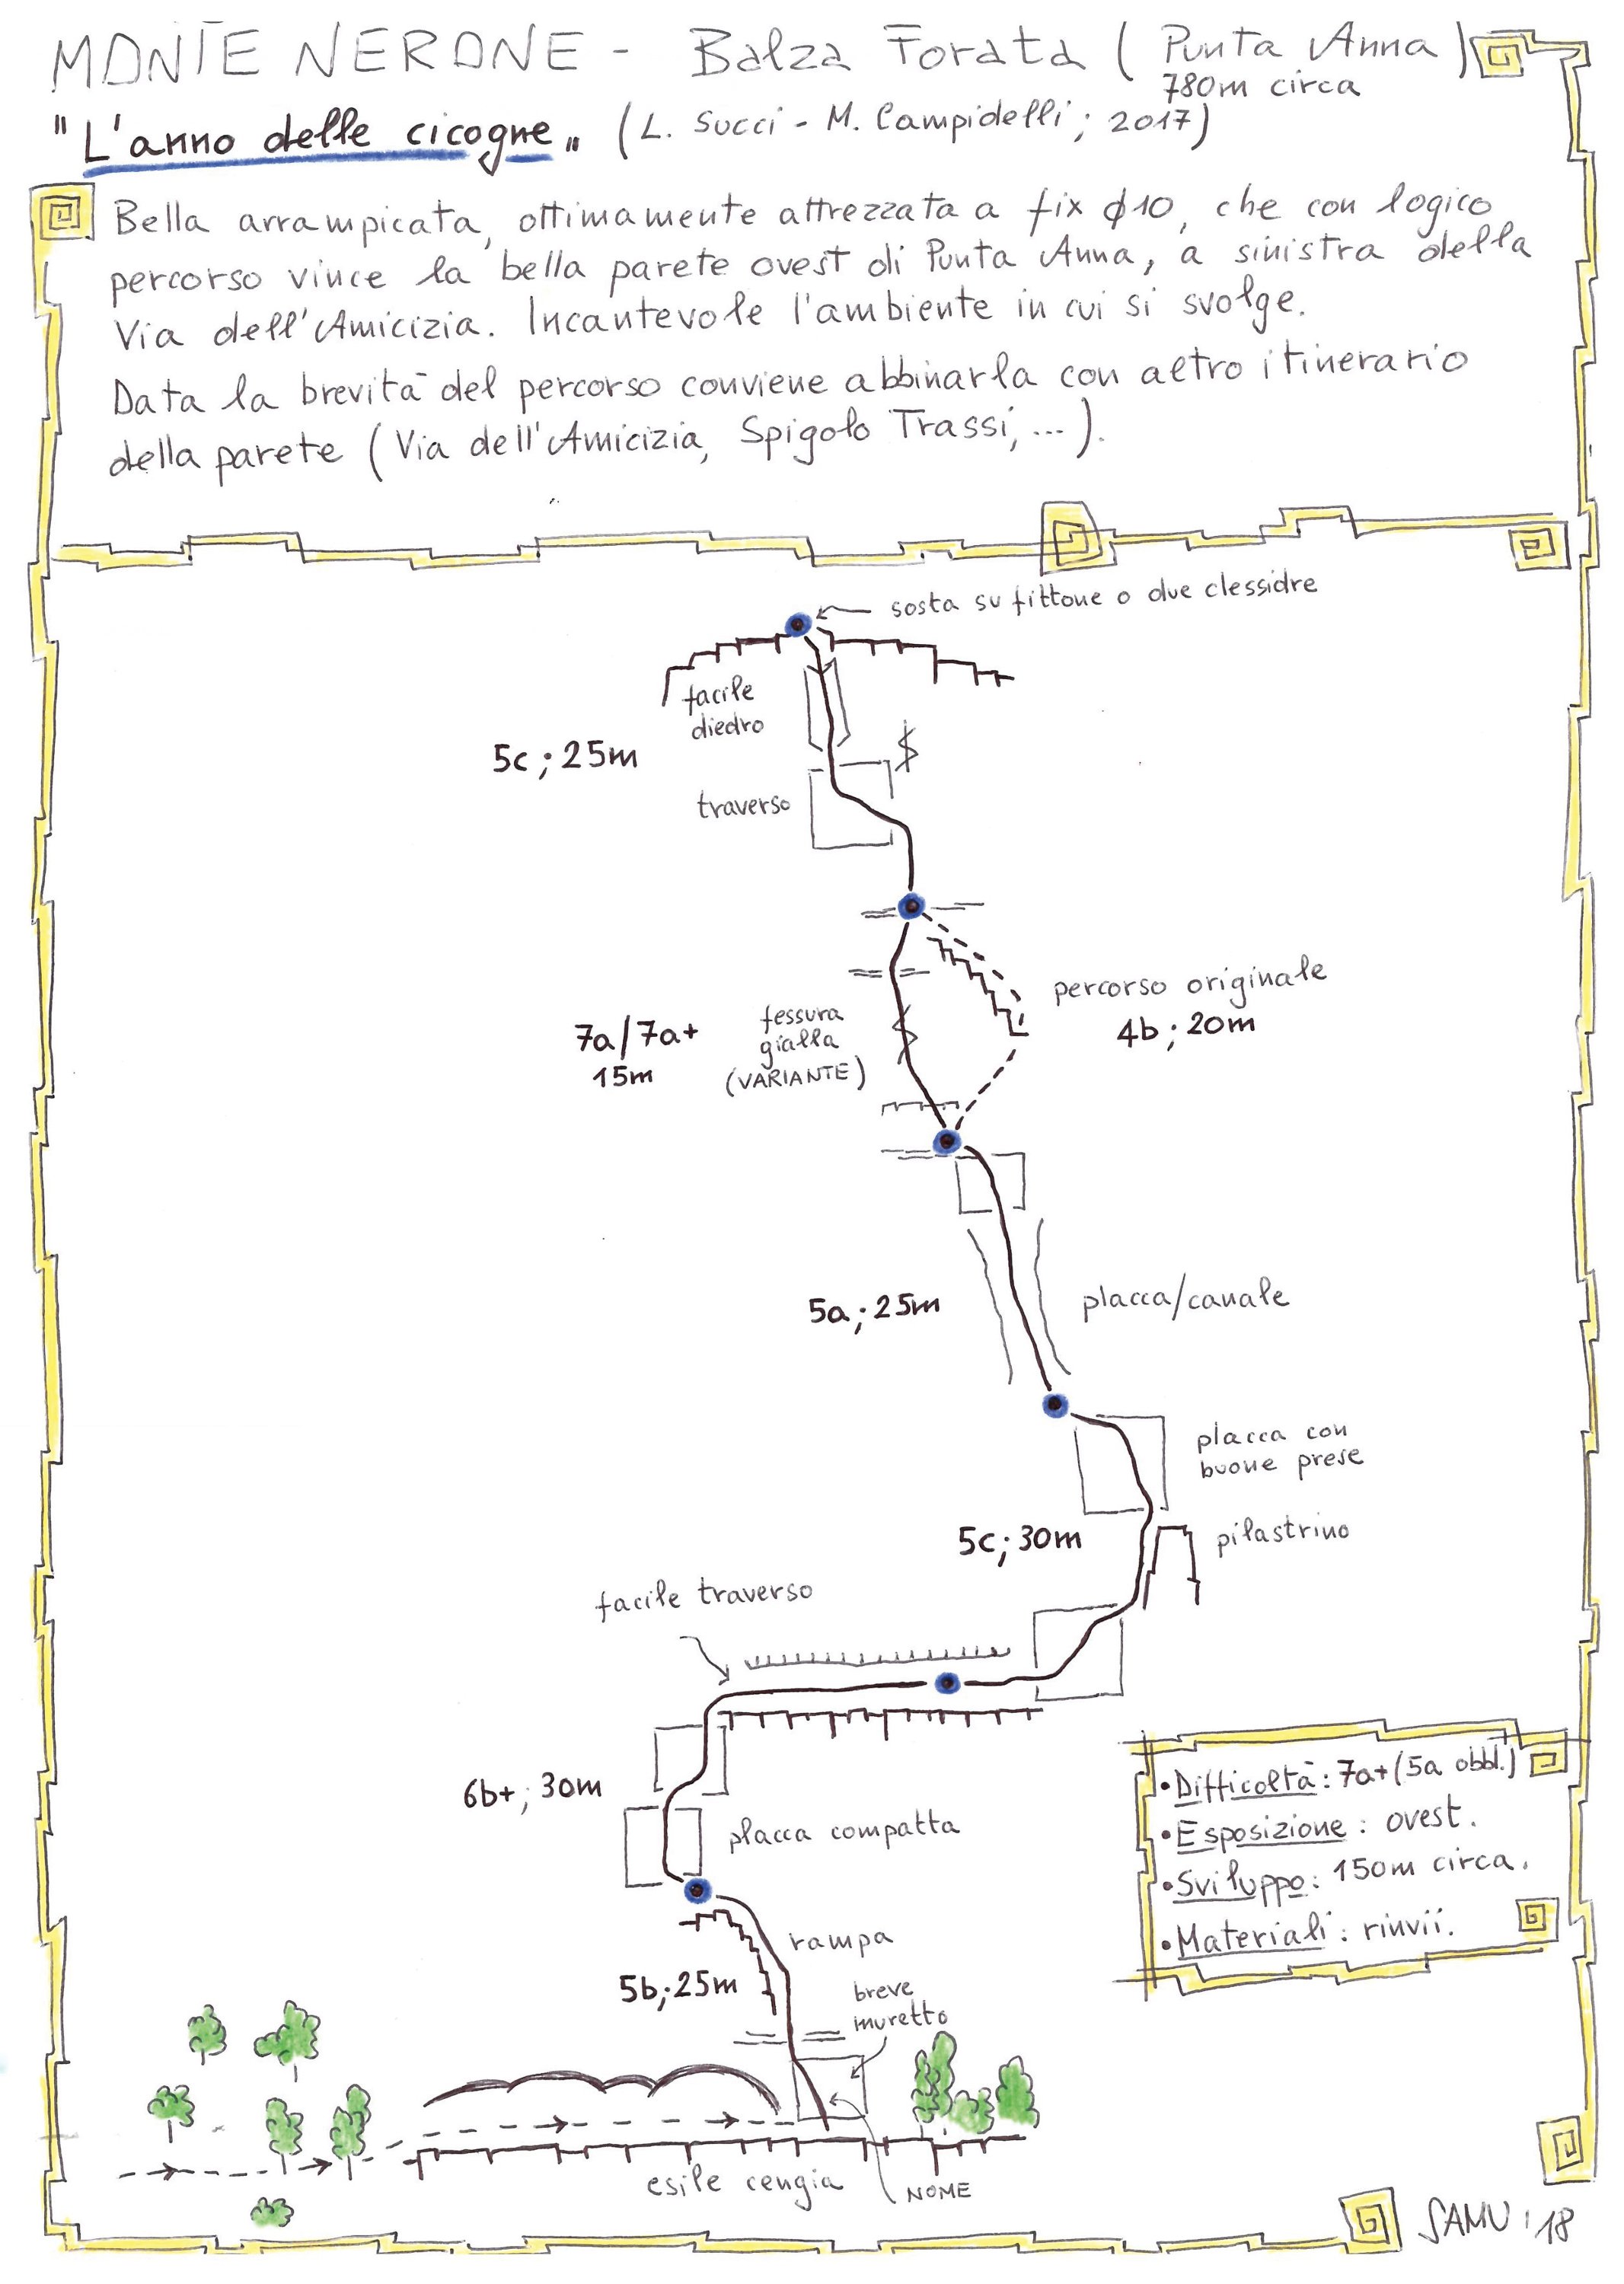 MONTE NERONE - Balza Forata (Punta Anna)
780m circa
"L'anno delle cicogne" (L. Succi - M. Campidelli; 2017)
Bella arrampicata, ottimamente attrezzata a fix ϕ10, che con logico
percorso vince la bella parete ovest di Punta Anna, a sinistra della
Via dell'Amicizia. Incantevole l'ambiente in cui si svolge.
Data la brevità del percorso conviene abbinarla con altro itinerario
della parete (Via dell'Amicizia, Spigolo Trassi, ...).
sosta su fittone o due clessidre
facile
diedro
5c; 25m
traverso
percorso originale
4b; 20m
7a/7a+
15m
fessura
gialla
(VARIANTE)
5a; 25m
placca/canale
placca con
buone prese
5c; 30m
pilastrino
facile traverso
6b+; 30m
placca compatta
• Difficoltà: 7a+ (5a obbl.)
• Esposizione: ovest.
• Sviluppo: 150m circa.
• Materiali: rinvii.
rampa
5b; 25m
breve
muretto
esile cengia
NOME
SAMU '18